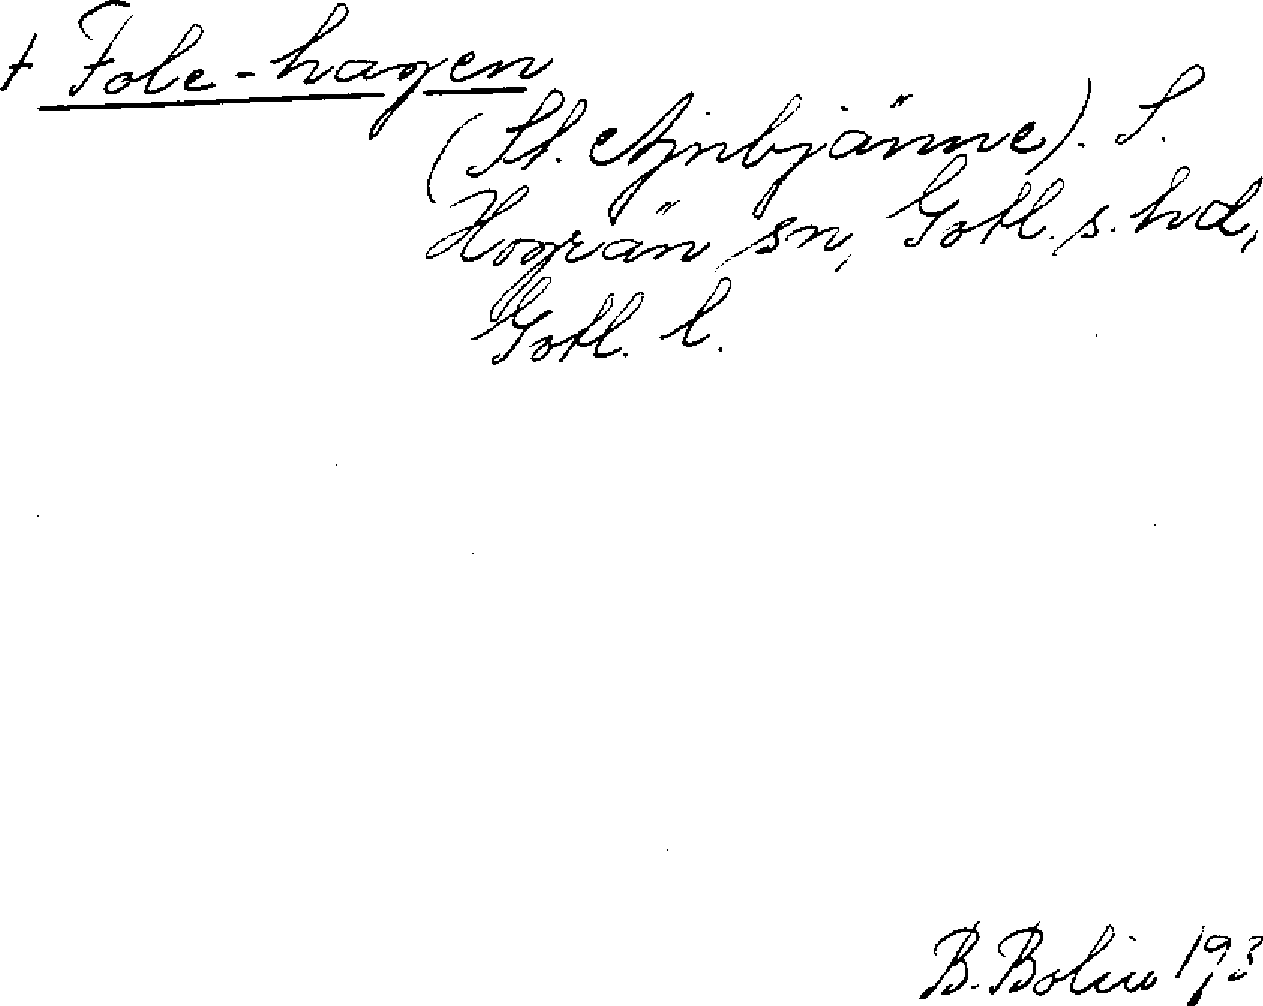 + Fole-hagen
(St. Ajnbjänne). S.
Hogrän sn, Gotl. s. hd,
Gotl. l.
B. Bolin 193